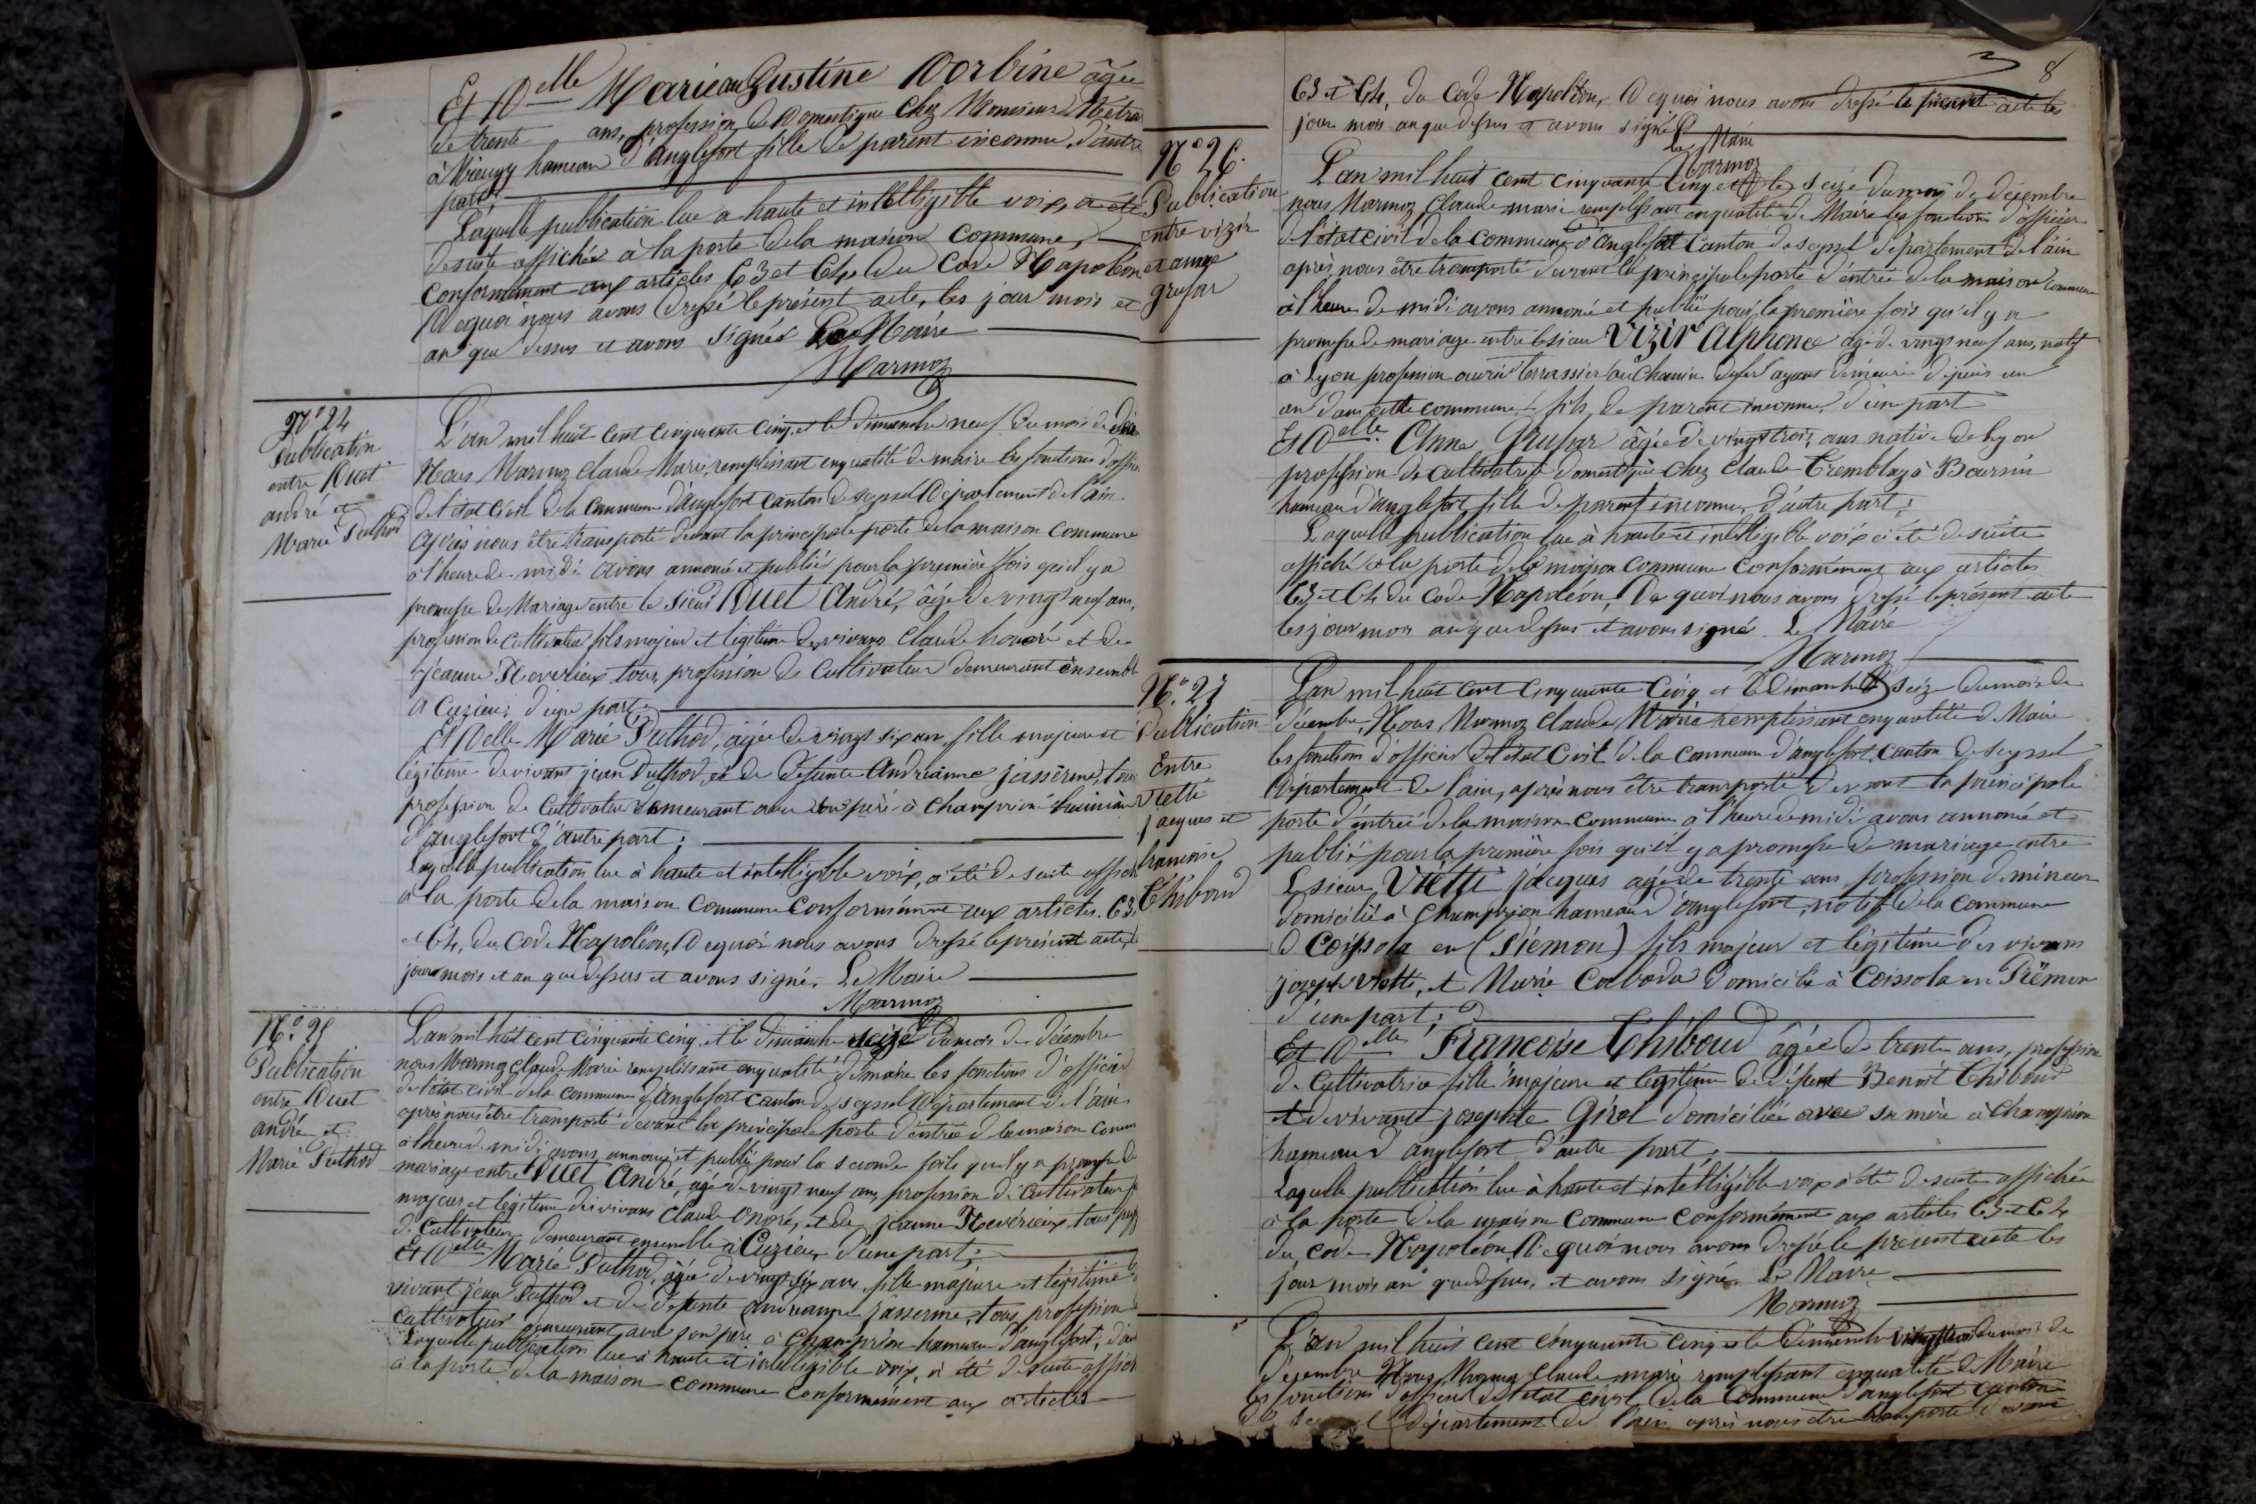 Et Delle Marie auGustine Dorbine âgée
de trente ans, profession de Domestique chez Monsieur
à hameau d'anglefort fille de parent inconnu, d'autre
part;
Laquelle publication lue a haute et intelligible voix, a été
de suite affichée à la porte de la maison commune,
conformément aux articles 63 et 64, du Code Napoléon
De quoi nous avons dressé le présent acte, les jour mois et
an que dessus et avons signés Le Maire
Marmoz
No 24
Publication
entre Duet
andré et
Marie Puthod
L'an mil huit cent cinquante cinq et le dimanche neuf du mois de
Nous Marmoz Claude Marie, remplissant en qualité de maire les fonctions d'officier
de l'état civil de la Commune d'anglefort canton de seyssel Département de l'ain.
après nous être transporté devant la principale porte de la maison commune
à l'heure de midi avons annoncé et publié pour la première fois qu'il y a
promesse de Mariage entre le sieur Duet André, âgé de vingt neuf ans,
profession de cultivateur fils majeur et légitime des vivans Claude honoré et de
jeanne tous profession de cultivateur demeurant ensemble
à Cuzieu; d'une part;
Et Delle Marie Puthod, âgée de vingt six ans, fille majeure et
légitime de vivant jean Puthod, et de défunte Andrianne jasserme, tous
profession de Cultivateur demeurant avec son père à Champrion hameau
d'anglefort d'autre part;
Laquelle publication lue à haute et intelligible voix, a été de suite affichée
à la porte de la maison commune conformément aux articles 63,
et 64, du Code Napoléon, De quoi nous avons dressé le présent acte
jour mois et an que dessus et avons signé. Le Maire
Marmoz
No 25
Publication
entre Duet
andré et
Marie Puthod
L'an mil huit cent cinquante cinq et le dimanche seize du mois de décembre
nous Marmoz Claude Marie remplissant en qualité de maire les fonctions d'officier
de l'état civil de la commune d'anglefort canton de seyssel Département de l'ain
après nous être transporté devant la principale porte d'entrée de la maison
à l'heure de midi avons annoncé et publié pour la seconde fois qu'il y a promesse de
mariage entre Duet André, agé de vingt neuf ans profession de cultivateur
majeur et légitime des vivans Claude onoré, et de jeanne tous
de cultivateur demeurant ensemble à Cuzieu, d'une part;
Et Delle Marie Puthod, âgée de vingt six ans, fille majeure et légitime
vivant jean Puthod et de défunte andrianne jasserme, tous profession
cultivateur demeurant avec son père à Champrion hameau d'anglefort, d'autre
Laquelle publication lue à haute et intelligible voix, a été de suite affichée
à la porte de la maison commune conformément aux articles
8
63 et 64, du Code Napoléon, De quoi nous avons dressé le présent acte les
jour mois an que dessus et avons signé Le Maire
Marmoz
No 26.
Publication
entre vizir
et anne
grusar
L'an mil huit cent cinquante Cinq et le seize du mois de décembre
nous Marmoz Claude marie remplissant en qualité de Maire les fonctions d'officier
de l'état civil de la commune d'anglefort Canton de seyssel département de l'ain
après nous être transporté devant la principale porte d'entrée de la maison commune
à l'heure de midi avons annoncé et publié pour la première fois qu'il y a
promesse de mariage entre le sieur Vizir Alphonce agé de vingt neuf ans, natif
à Lyon profession ouvrier terrassier au chemin de fer ayant demeuré depuis un
an dans cette commune fils de parent inconnu, d'une part
Et Delle Anne Grusar âgée de vingt trois ans native de Lyon
profession de cultivatrice domestique chez Claude Tremblay à
hameau d'anglefort fille de parent inconnu, d'autre part;
Laquelle publication lue à haute et intelligible voix a été de suite
affiché à la porte de la maison commune conformément aux articles
63 et 64 du Code Napoléon, De quoi nous avons dressé le présent acte
les jour mois an que dessus et avons signé Le Maire
Marmoz
No 27
Publication
Entre
Viette
jacques et
francoise
Thiboud
L'an mil huit cent cinquante Cinq et le Dimanche seize du mois de
décembre, Nous Marmoz Claude Marie remplissant en qualité de Maire
les fonctions d'officier de l'état Civil de la commune d'anglefort, canton de seyssel
Département de l'ain, après nous être transporté devant la principale
porte d'entrée de la maison commune à l'heure de midi avons annoncé et
publié pour la première fois qu'il y a promesse de mariage entre
Le sieur, Viette jacques agé de trente ans profession de mineur
domicilié à Champrion hameau d'anglefort, natif de la commune
d Coissola en (Siémon) fils majeur et légitime des vivans
joseph Viette, et Marie domicilié à Coissola en Piémon
d'une part;
Et Delle Françoise Thiboud âgée de trente ans, profession
de Cultivatrice fille majeure et légitime de défunt Benoit Thiboud
et de vivante josephte Girel domiciliée avec sa mère à Champrion
hameau d'anglefort d'autre part,
Laquelle publication lue à haute et intelligible voix a été de suite affichée
à la porte de la maison commune conformément aux articles 63 et 64
du Code Napoléon, De quoi nous avons dressé le présent acte les
jour mois an que dessus, et avons signé Le Maire
Marmoz
L'an mil huit cent cinquante cinq et le Dimanche vingt trois du mois de
Décembre Nous Marmoz Claude marie remplissant en qualité de Maire
les fonctions d'officier de l'état civil de la commune d'anglefort canton
de département de l'ain après nous être transporté devant